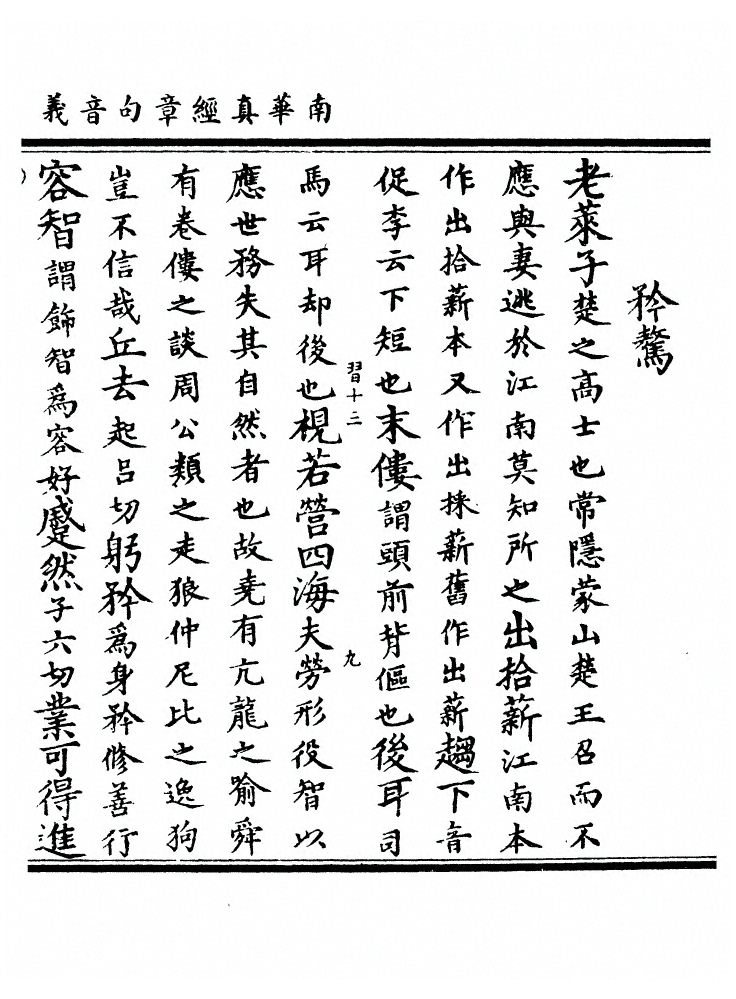 南華真經章句音義
矜驁
老萊子楚之高士也常隱蒙山楚王召而不
應與妻逃於江南莫知所之出拾薪江南本
作出拾薪本又作出採薪舊作出薪趨下音
促李云下短也末僂謂頭前背傴也後耳司
習十三
九
馬云耳却後也視若營四海夫勞形役智以
應世務失其自然者也故堯有亢龍之喻舜
有卷僂之談周公類之走狼仲尼比之逸狗
豈不信哉丘去起呂切躬矜為身矜修善行
容智謂飾智為容好蹙然子六切業可得進